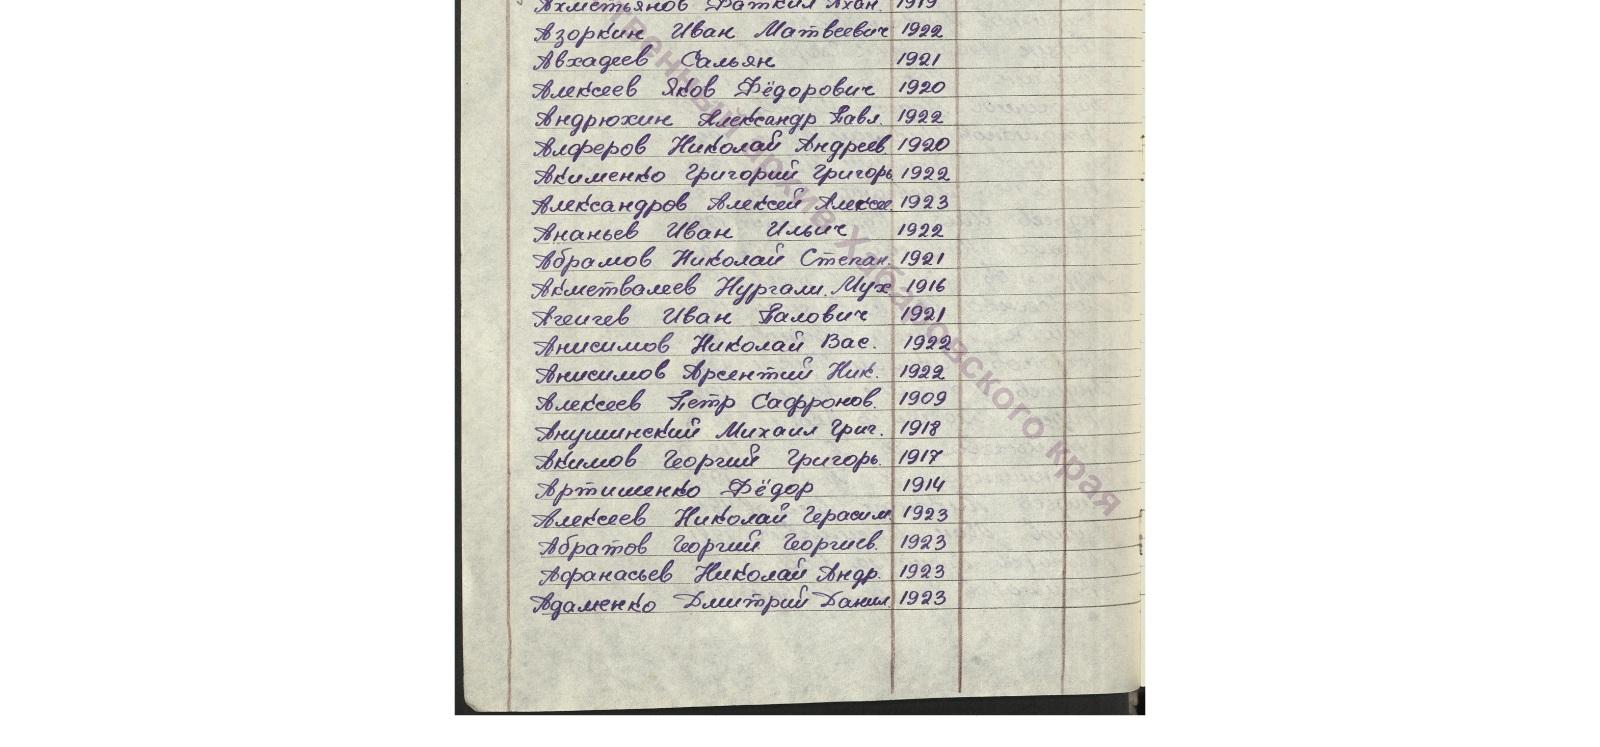 Ахметьянов Фаткил Ахан. 1919
Азоркин Иван Матвеевич 1922
Авхадеев Сальян 1921
Алексеев Яков Фёдорович 1920
Андрюхин Александр Павл. 1922
Алферов Николай Андреев. 1920
Акименко Григорий Григорь. 1922
Александров Алексей Алексее. 1923
Ананьев Иван Ильич 1922
Абрамов Николай Степан. 1921
Акметвалеев Нургали. Мух. 1916
Агеичев Иван Палович 1921
Анисимов Николай Вас. 1922
Анисимов Арсентий Ник. 1922
Алексеев Петр Сафронов. 1909
Анушинский Михаил Григ. 1918
Акимов Георгий Григорь. 1917
Артишенко Фёдор 1914
Алексеев Николай Герасим. 1923
Абратов Георгий Георгиев. 1923
Афанасьев Николай Андр. 1923
Адаменко Дмитрий Данил. 1923
твенный архив Хабаровского края